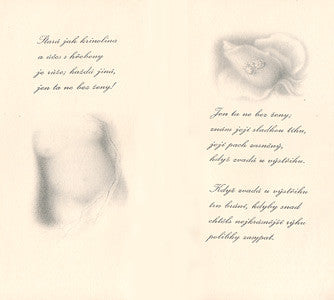 Stará jak krinolina
a účes s hřebeny
je růže; každá jiná,
jen ta ne bez ženy!
Jen ta ne bez ženy;
znám její sladkou tíhu,
její pach zasněný,
když zvadá u výstřihu.
Když zvadá u výstřihu
trn brání, kdyby snad
chtěls nejkrásnější rýhu
polibky zasypat.